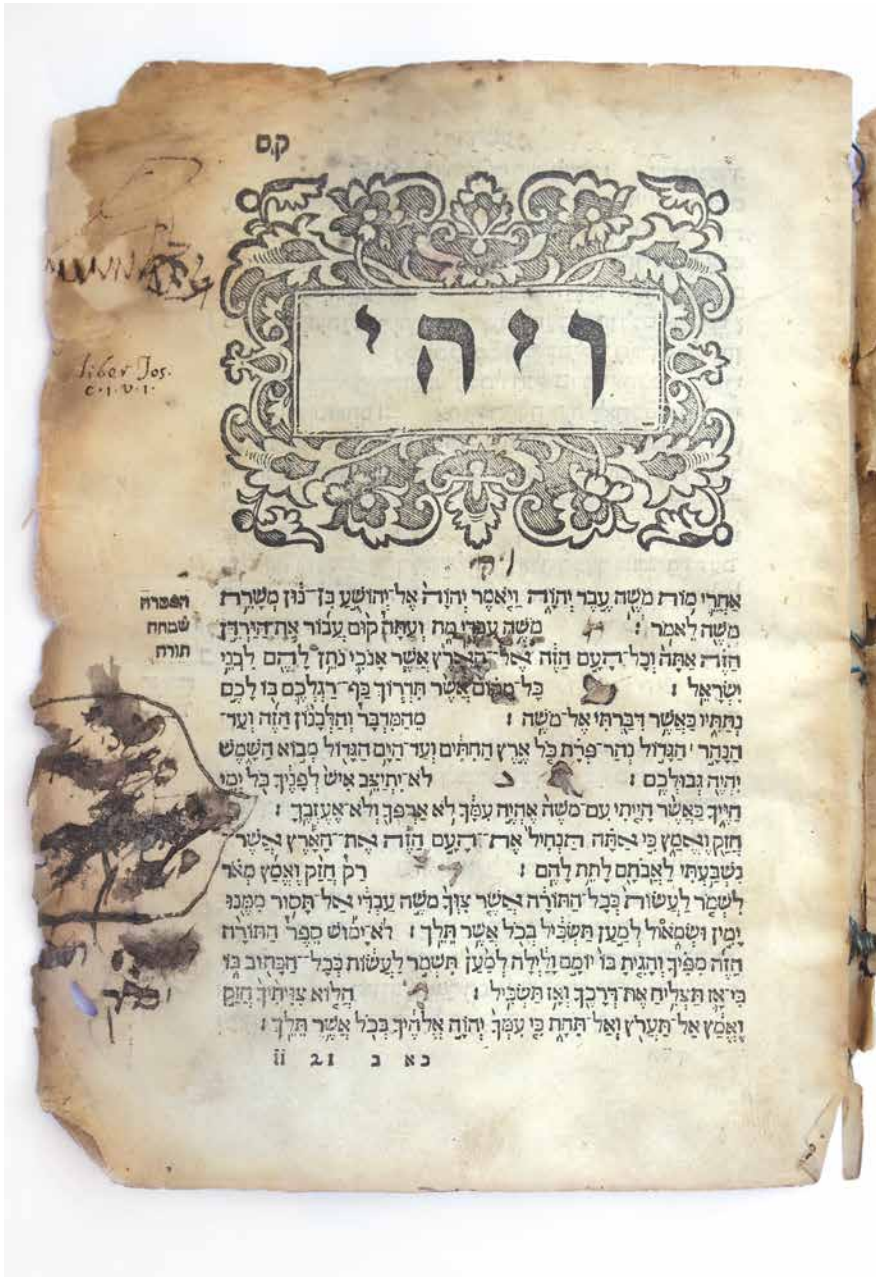 ק,ם
liber Jos.
c. 1. v. 1.
ויהי
אַחֲרֵי מוֹת מֹשֶׁה עֶבֶד יְהוָה וַיֹּאמֶר יְהוָה אֶל־יְהוֹשֻׁעַ בִּן־נוּן מְשָׁרֵת
מֹשֶׁה לֵאמֹר : מֹשֶׁה עַבְדִּי מֵת וְעַתָּה קוּם עֲבוֹר אֶת־הַיַּרְדֵּן
הַזֶּה אַתָּה וְכָל־הָעָם הַזֶּה אֶל־הָאָרֶץ אֲשֶׁר אָנֹכִי נֹתֵן לָהֶם לִבְנֵי
יִשְׂרָאֵל : כָּל־מָקוֹם אֲשֶׁר תִּדְרוֹךְ כַּף־רַגְלְכֶם בּוֹ לָכֶם
נְתַתִּיו כַּאֲשֶׁר דִּבַּרְתִּי אֶל־מֹשֶׁה : מֵהַמִּדְבָּר וְהַלְּבָנוֹן הַזֶּה וְעַד־
הַנָּהָר הַגָּדוֹל נְהַר־פְּרָת כֹּל אֶרֶץ הַחִתִּים וְעַד־הַיָּם הַגָּדוֹל מְבוֹא הַשָּׁמֶשׁ
יִהְיֶה גְּבוּלְכֶם : לֹא־יִתְיַצֵּב אִישׁ לְפָנֶיךָ כֹּל יְמֵי
חַיֶּיךָ כַּאֲשֶׁר הָיִיתִי עִם־מֹשֶׁה אֶהְיֶה עִמָּךְ לֹא אַרְפְּךָ וְלֹא אֶעֶזְבֶךָּ :
חֲזַק וֶאֱמָץ כִּי אַתָּה תַּנְחִיל אֶת־הָעָם הַזֶּה אֶת־הָאָרֶץ אֲשֶׁר־
נִשְׁבַּעְתִּי לַאֲבֹתָם לָתֵת לָהֶם : רַק חֲזַק וֶאֱמָץ מְאֹד
לִשְׁמֹר לַעֲשׂוֹת כְּכָל־הַתּוֹרָה אֲשֶׁר צִוְּךָ מֹשֶׁה עַבְדִּי אַל־תָּסוּר מִמֶּנּוּ
יָמִין וּשְׂמֹאול לְמַעַן תַּשְׂכִּיל בְּכֹל אֲשֶׁר תֵּלֵךְ : לֹא־יָמוּשׁ סֵפֶר הַתּוֹרָה
הַזֶּה מִפִּיךָ וְהָגִיתָ בּוֹ יוֹמָם וָלַיְלָה לְמַעַן תִּשְׁמֹר לַעֲשׂוֹת כְּכָל־הַכָּתוּב בּוֹ
כִּי־אָז תַּצְלִיחַ אֶת־דְּרָכֶךָ וְאָז תַּשְׂכִּיל : הֲלוֹא צִוִּיתִיךָ חֲזַק
וֶאֱמָץ אַל־תַּעֲרֹץ וְאַל־תֵּחָת כִּי עִמְּךָ יְהוָה אֱלֹהֶיךָ בְּכֹל אֲשֶׁר תֵּלֵךְ :
הפטרה
שמחת
תורה
כא ב 21 ii